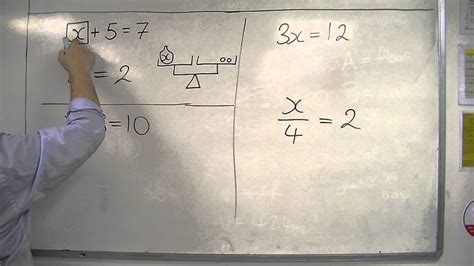 x + 5 = 7
= 2
x
= 10
3x = 12
x/4 = 2